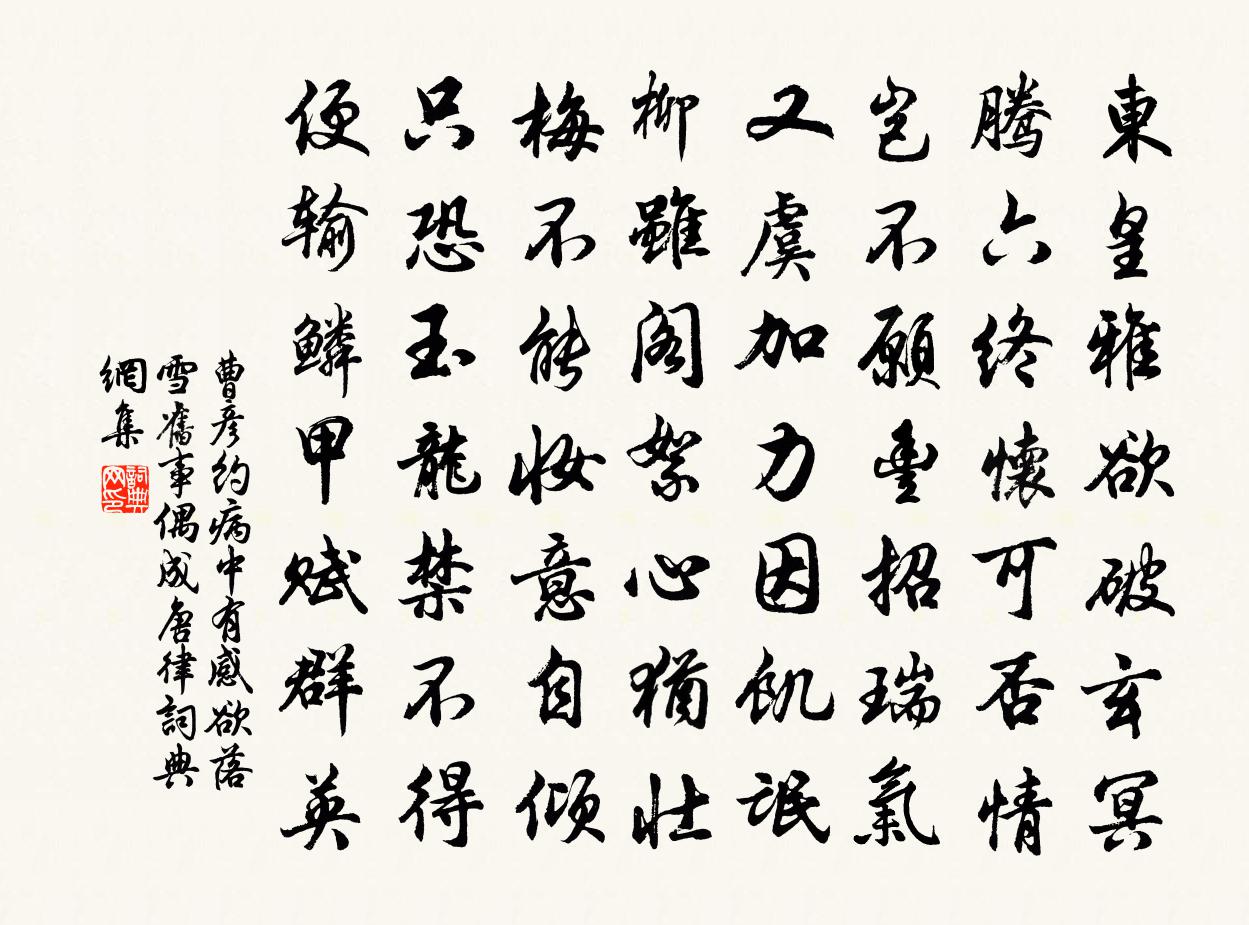 東皇雅欲破玄冥
騰六終懷可否情
豈不願豐招瑞氣
又虞加力因飢氓
柳雖閣絮心猶壯
梅不能妝意自傾
只恐玉龍禁不得
便输鱗甲賦群英
曹彦约病中有感欲落
雪舊事偶成唐律詞典
網集
詞典
网印